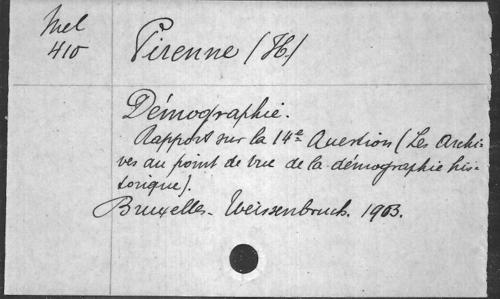 Mel
410
Pirenne (H.)
Démographie.
Rapport sur la 14e Question (Les Archi-
ves au point de vue de la démographie his-
torique).
Bruxelles. Weissenbruch. 1903.